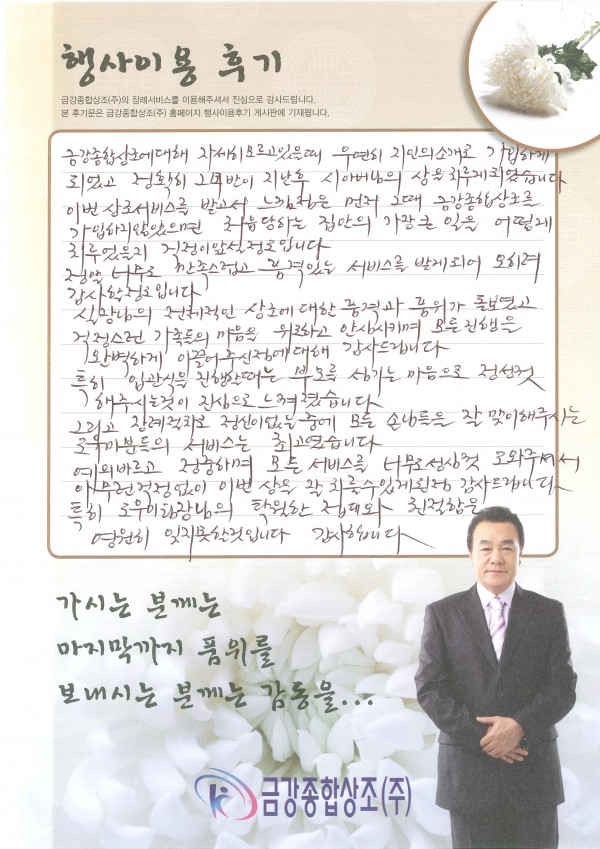 행사이용 후기
금강종합상조(주)의 장례서비스를 이용해주셔서 진심으로 감사드립니다.
본 후기문은 금강종합상조(주) 홈페이지 행사이용후기 게시판에 기재됩니다.
금강종합상조에대해 자세히모르고있을때 우연히 지인의소개로 가입하게
되었고 정확히 그후반이 지난후 시아버님의 상을 치루게되었습니다
이번 상조서비스를 받고서 느낀점은 먼저 그때 금강종합상조를
가입하지않았으면 처음당하는 집안의 가장큰일을 어떻게
치루었을지 걱정이앞설정도입니다
정말 너무도 만족스럽고 품격있는 서비스를 받게되어 오히려
감사할정도입니다
실장님의 전체적인 상조에 대한 품격과 품위가 돋보였고
걱정스런 가족들의 마음을 위로하고 안심시키며 모든진행을
완벽하게 이끌어주신점에대해 감사드립니다
특히 입관식을 진행할때는 부모를 섬기는 마음으로 정성껏
해주시는것이 진심으로 느껴졌습니다
그리고 장례절차로 정신이없는 중에 모든 손님들을 잘 맞이해주시는
도우미분들의 서비스는 최고였습니다
예의바르고 정중하며 모든 서비스를 너무도성심껏 도와주셔서
아무런걱정없이 이번 상을 잘 치룰수있게된점 감사드립니다
특히 도우미팀장님의 탁월한 접대와 친절함은
영원히 잊지못할것입니다 감사합니다
가시는 분께는
마지막까지 품위를
보내시는 분께는 감동을...
금강종합상조(주)